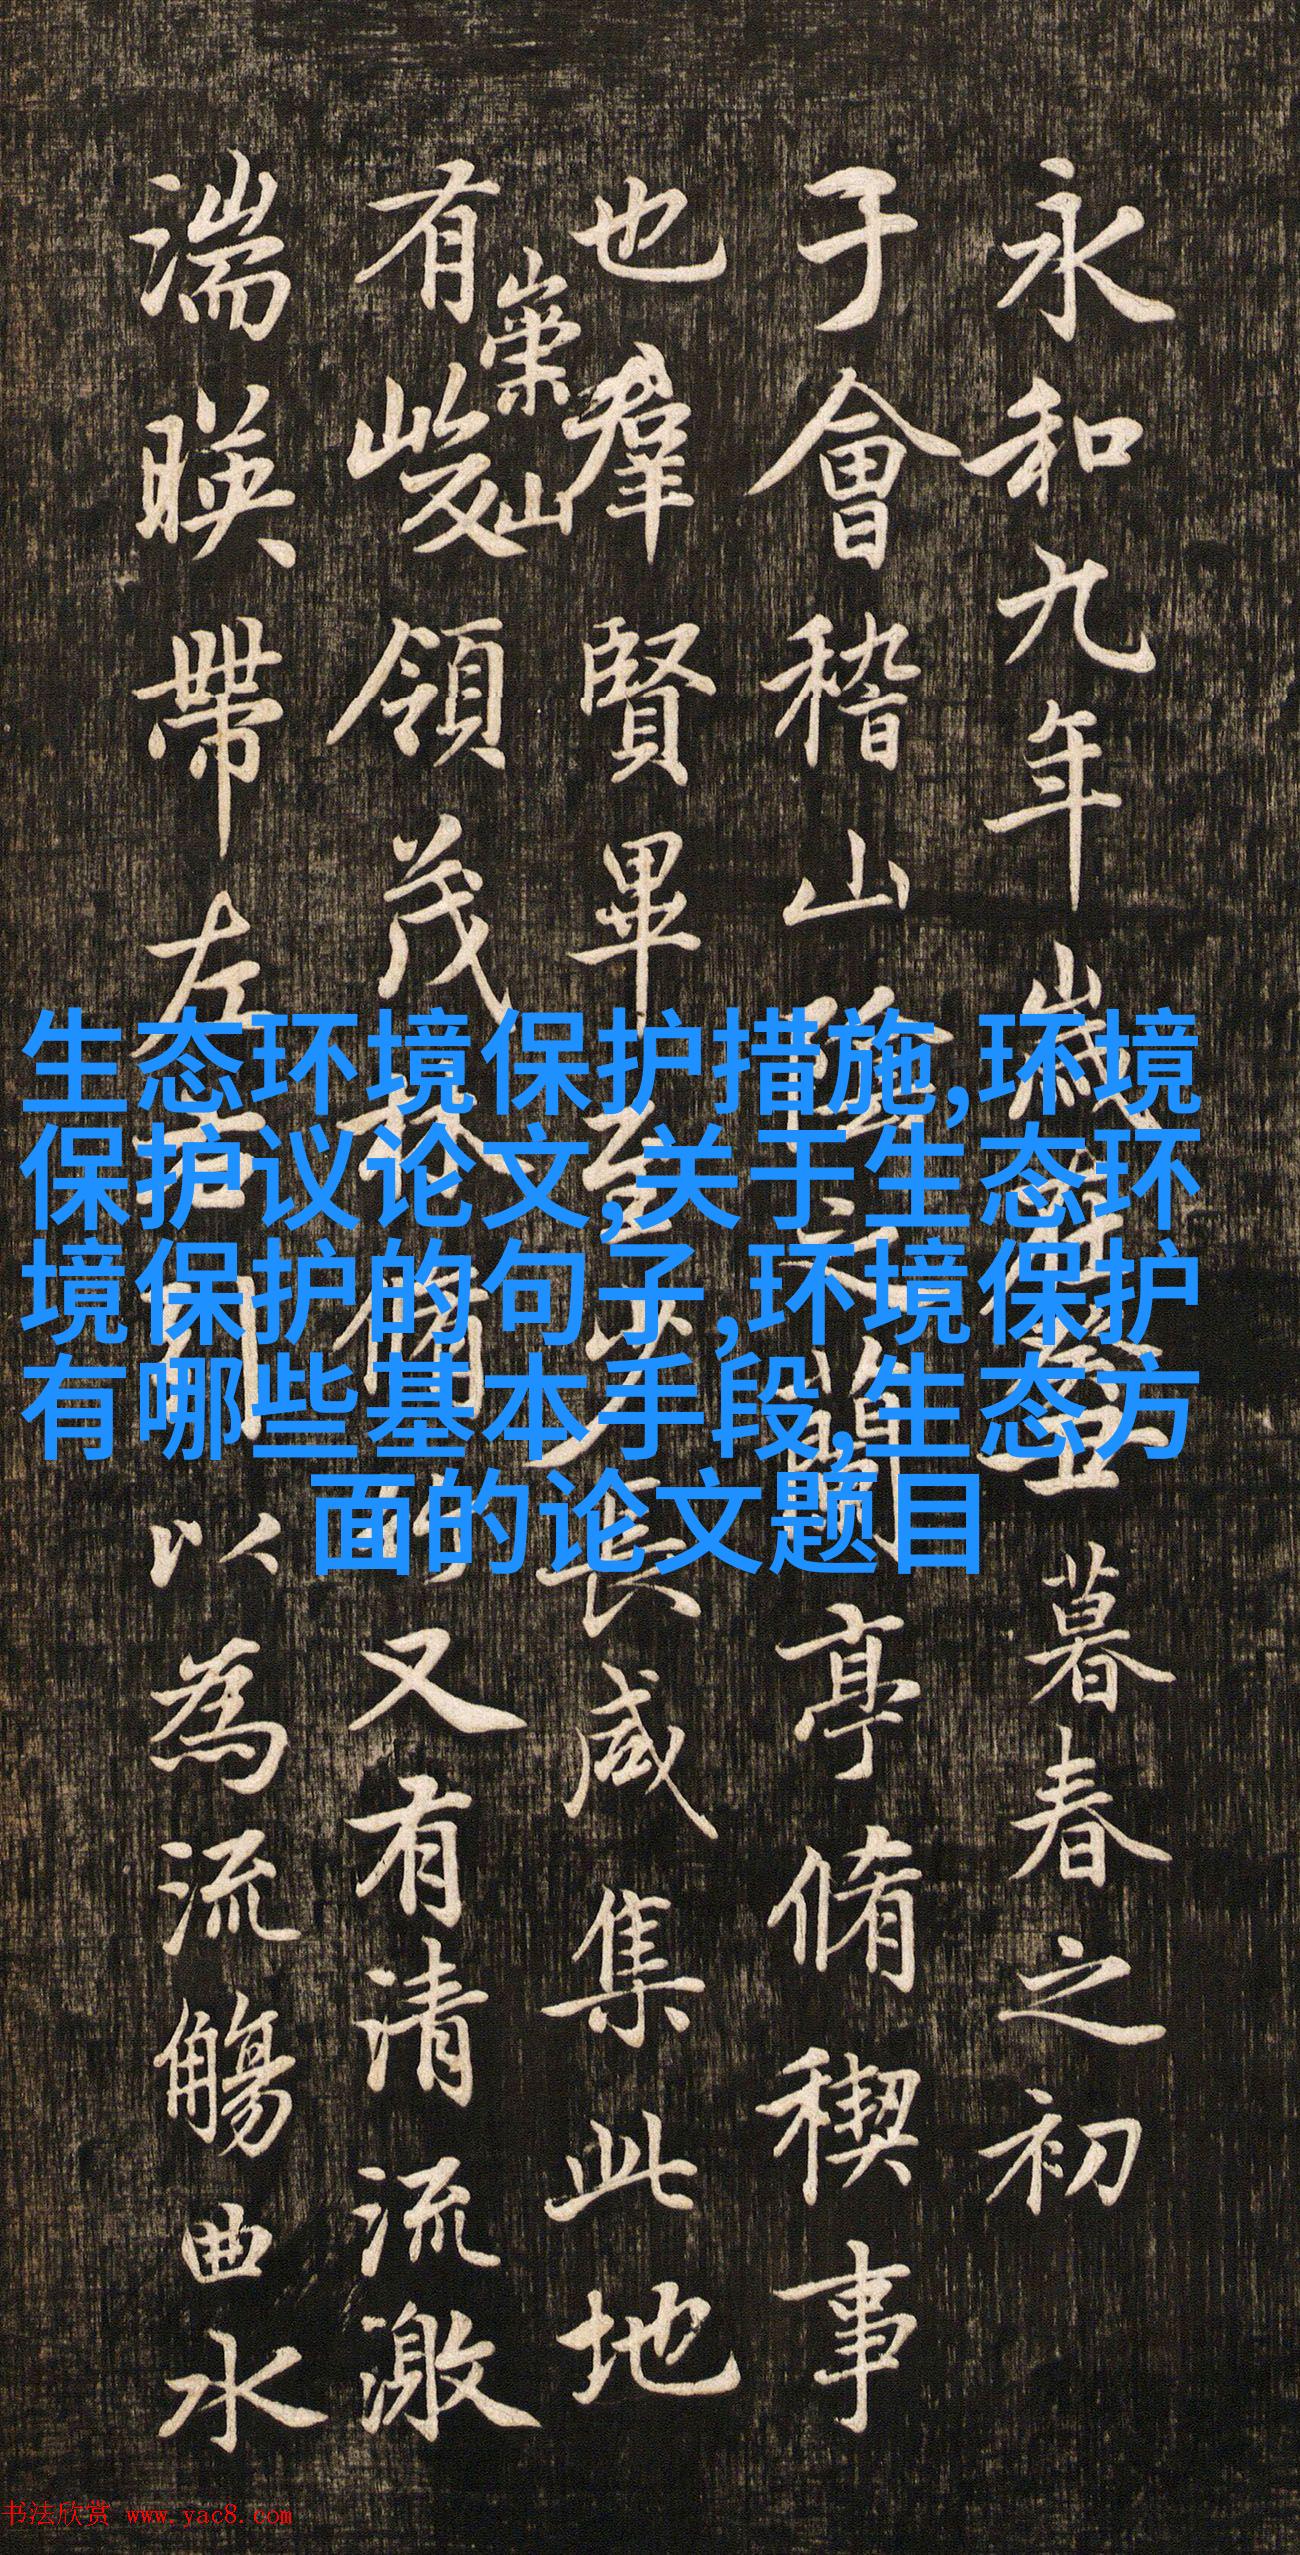 永和九年歲在癸丑暮春之初
于會稽山陰之蘭亭脩稧事
也羣賢畢至少長咸集此地
有崇山峻領茂林脩竹又有清流激
湍暎帶左右引以為流觴曲水
生态环境保护措施,环境
保护议论文,关于生态环
境保护的句子,环境保护
有哪些基本手段,生态方
面的论文题目
书法欣赏 www.yac8.com